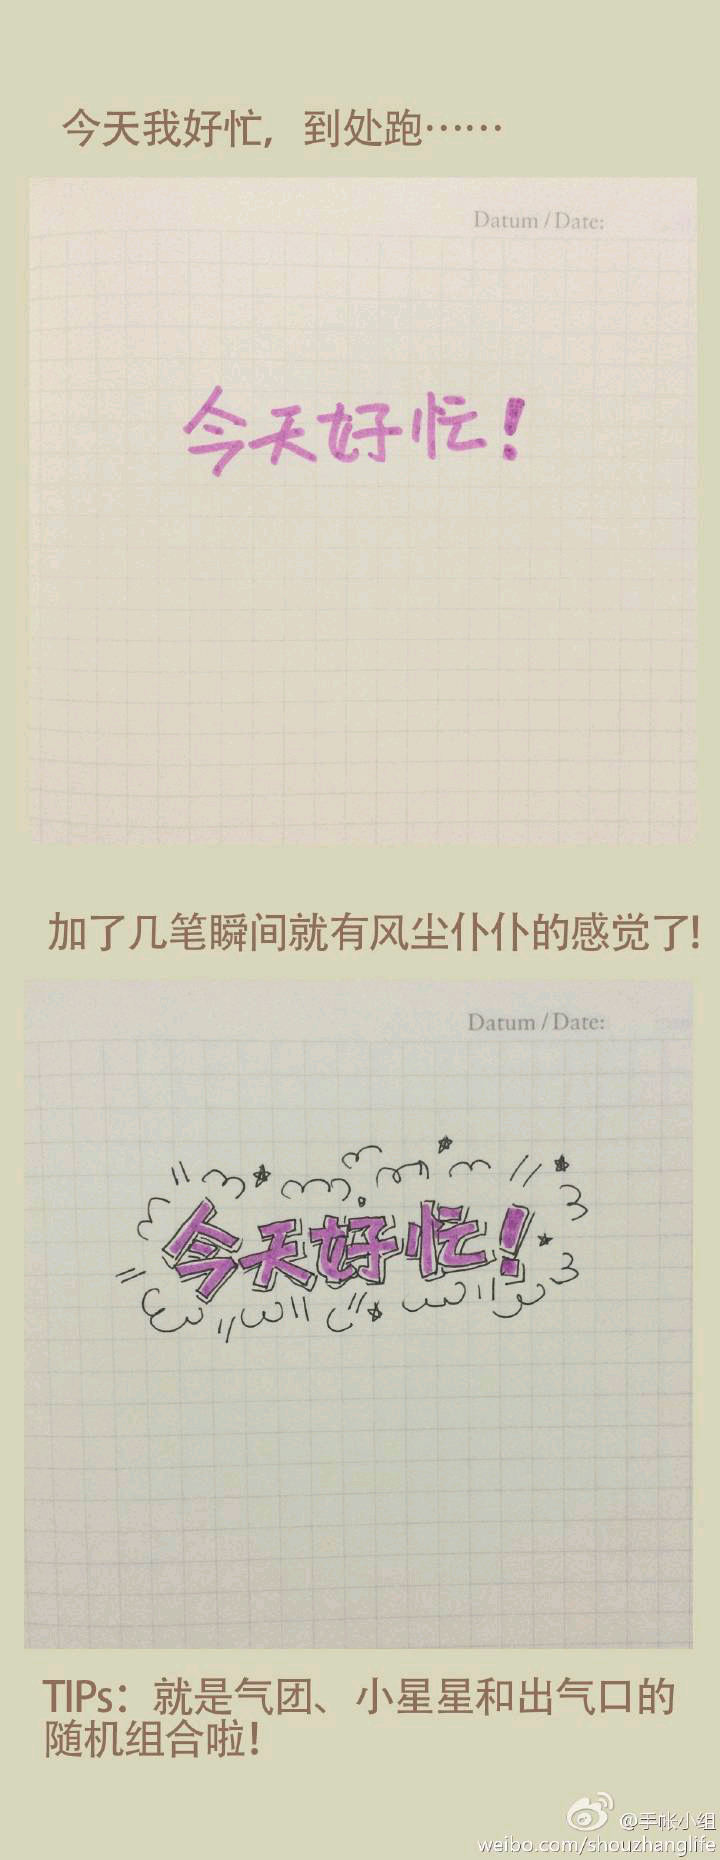 今天我好忙，到处跑……
Datum / Date:
今天好忙！
加了几笔瞬间就有风尘仆仆的感觉了！
Datum / Date:
今天好忙！
TIPs：就是气团、小星星和出气口的
随机组合啦！
@手帐小组
weibo.com/shouzhanglife